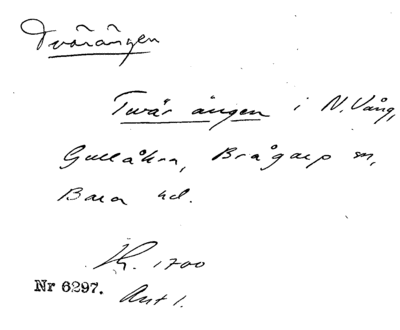 Tvärängen
Twär ängen i N. Vång,
Gullåkra, Brågarp sn,
Bara hd.
1700
Nr 6297. Akt 1.